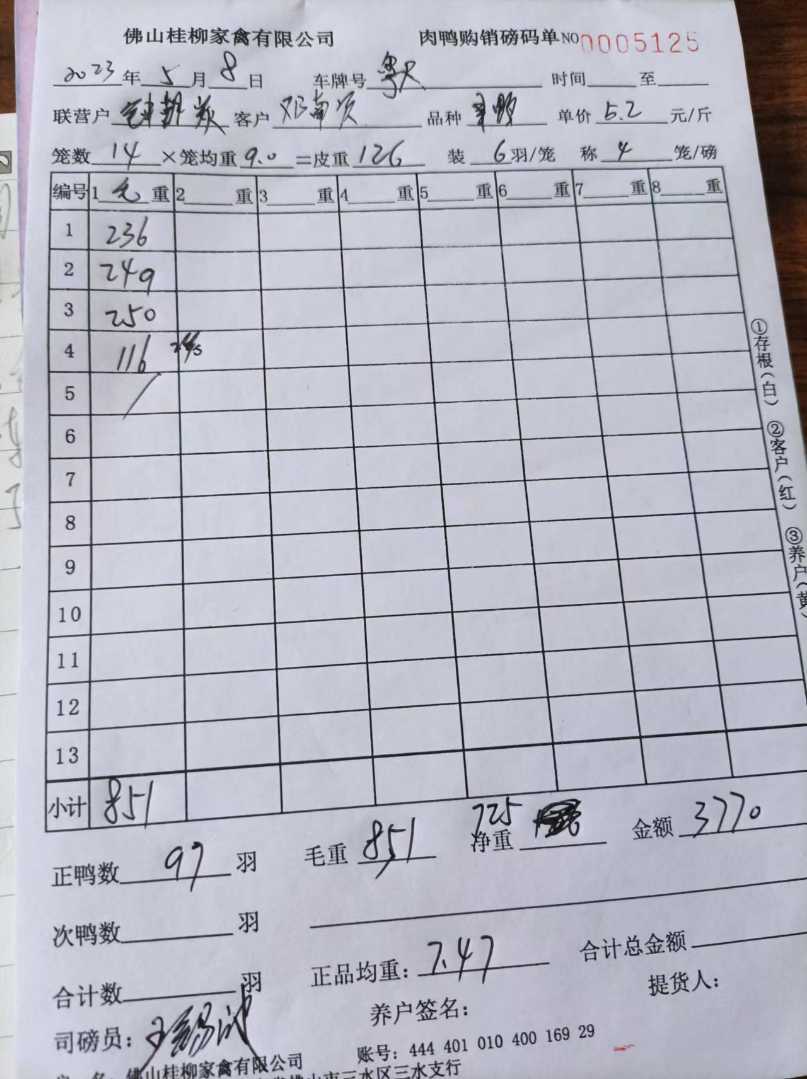 佛山桂柳家禽有限公司 肉鸭购销磅码单 NO 0005125
2023年 5月 8日 车牌号 时间 至
联营户 客户 邓南贤 品种 单价 5.2 元/斤
笼数 14 ×笼均重 9.0 =皮重 126 装 6 羽/笼 称 4 笼/磅
编号 1 毛 重 2 重 3 重 4 重 5 重 6 重 7 重 8 重
1 236
2 249
3 250
4 116
5 /
6
7
8
9
10
11
12
13
小计 851
正鸭数 97 羽 毛重 851 净重 725 金额 3770
次鸭数 羽
合计数 羽 正品均重: 7.47 合计总金额
司磅员: 养户签名: 提货人:
户 名 佛山桂柳家禽有限公司 账号: 444 401 010 400 169 29
佛山市三水区三水支行
①存根(白) ②客户(红) ③养户(黄)